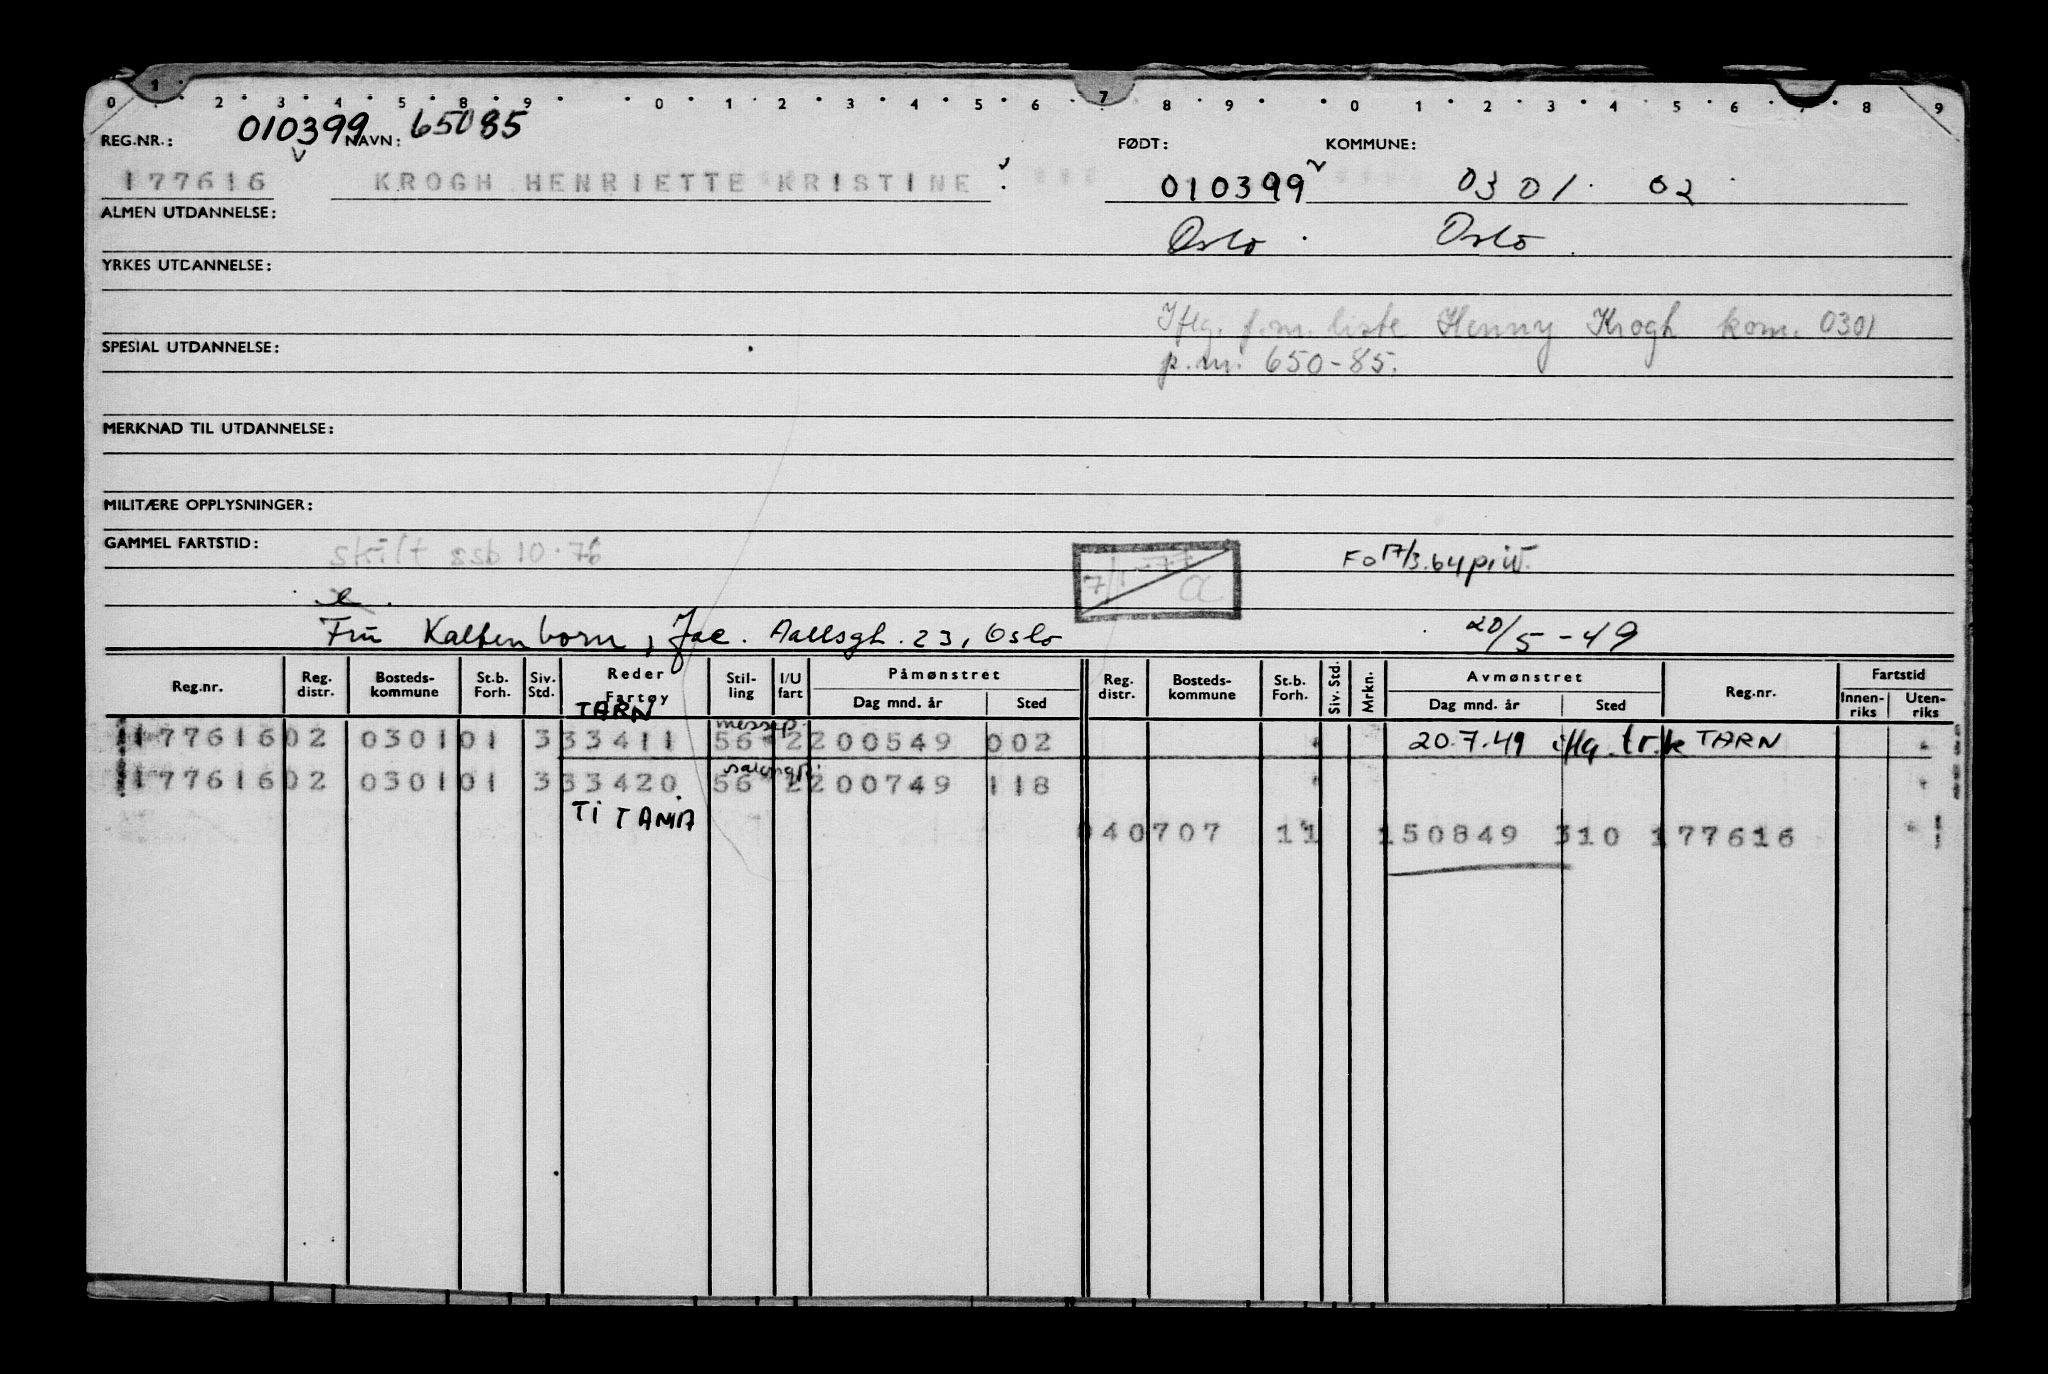 0 1 2 3 4 5 8 9 0 1 2 3 4 5 6 7 8 9 0 1 2 3 4 5 6 7 8 9
REG.NR.: 010399 NAVN: 65085 FØDT: KOMMUNE:
177616 KROGH HENRIETTE KRISTINE 010399 0301 02
ALMEN UTDANNELSE: Oslo Oslo
YRKES UTDANNELSE:
Iflg. f.m. liste Henny Krogh kom. 0301
SPESIAL UTDANNELSE: p.m. 650-85.
MERKNAD TIL UTDANNELSE:
MILITÆRE OPPLYSNINGER:
GAMMEL FARTSTID: skilt ssb 10.76 7/1-77 a FO 17/3.64 priv.
e.
Fru Kaltenborn, Jac. Aallsgt. 23, Oslo 20/5-49
Reg.nr. Reg. distr. Bosteds-kommune St.b. Forh. Siv. Std. Reder Fartøy Stil-ling I/U fart Påmønstret Dag mnd. år Sted Reg. distr. Bosteds-kommune St.b. Forh. Siv. Std. Mrkn. Avmønstret Dag mnd. år Sted Reg.nr. Fartstid Innen-riks Uten-riks
TARN messp.
177616 02 0301 01 3 33411 56 2 200549 002 20.7.49 iflg. tr.k TARN
salongp.
177616 02 0301 01 3 33420 56 2 200749 118
TITANIA
04 0707 11 150849 310 177616